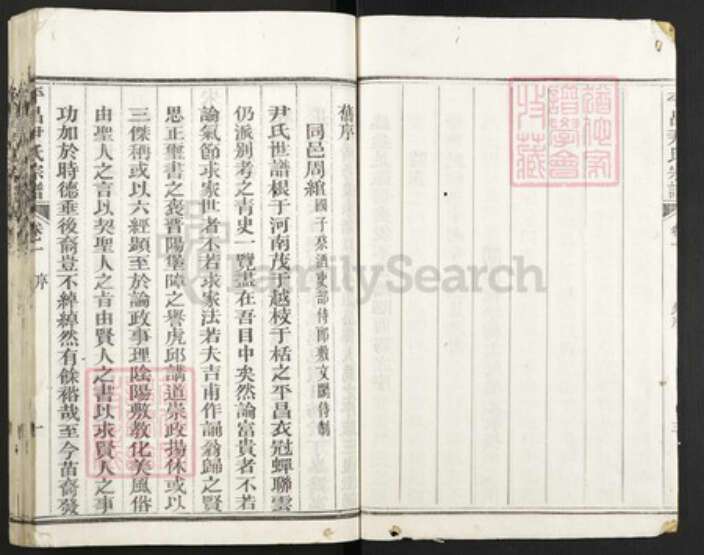 舊序
同邑周綰國子祭酒吏部侍郎敷文閣侍制
尹氏世譜根于河南茂于越枝于栝之平昌衣冠蟬聯雲
仍派別考之青史一覽盡在吾目中矣然論富貴者不若
論氣節求家世者不若求家法若夫吉甫作誦翁歸之賢
思正璽書之褒晋陽堡障之譽虎邱講道崇政揚休或以
三傑稱或以六經顯至於論政事理陰陽敷教化美風俗
由聖人之言以契聖人之旨由賢人之書以求賢人之事
功加於時德垂後裔豈不綽綽然有餘裕哉至今苗裔發
平昌尹氏宗譜
卷一
序
一
平昌尹氏宗譜
道他家譜學會收藏
FamilySearch